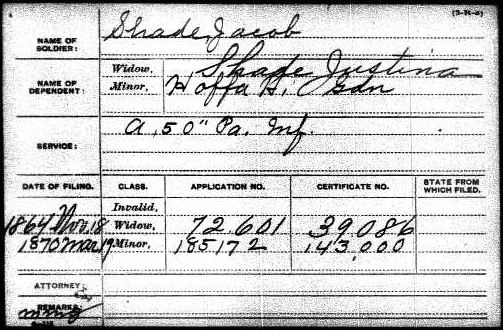 (3-H-3)
NAME OF SOLDIER: Shade, Jacob
NAME OF DEPENDENT: Widow, Shade Justina
Minor, Hoffa H. Gdn
SERVICE: A, 50" Pa. Inf.
DATE OF FILING. CLASS. APPLICATION NO. CERTIFICATE NO. STATE FROM WHICH FILED.
Invalid,
1864 Nov. 18 Widow, 72.601 39,086
1870 Mar 19 Minor, 185172 143,000
ATTORNEY:
REMARKS: